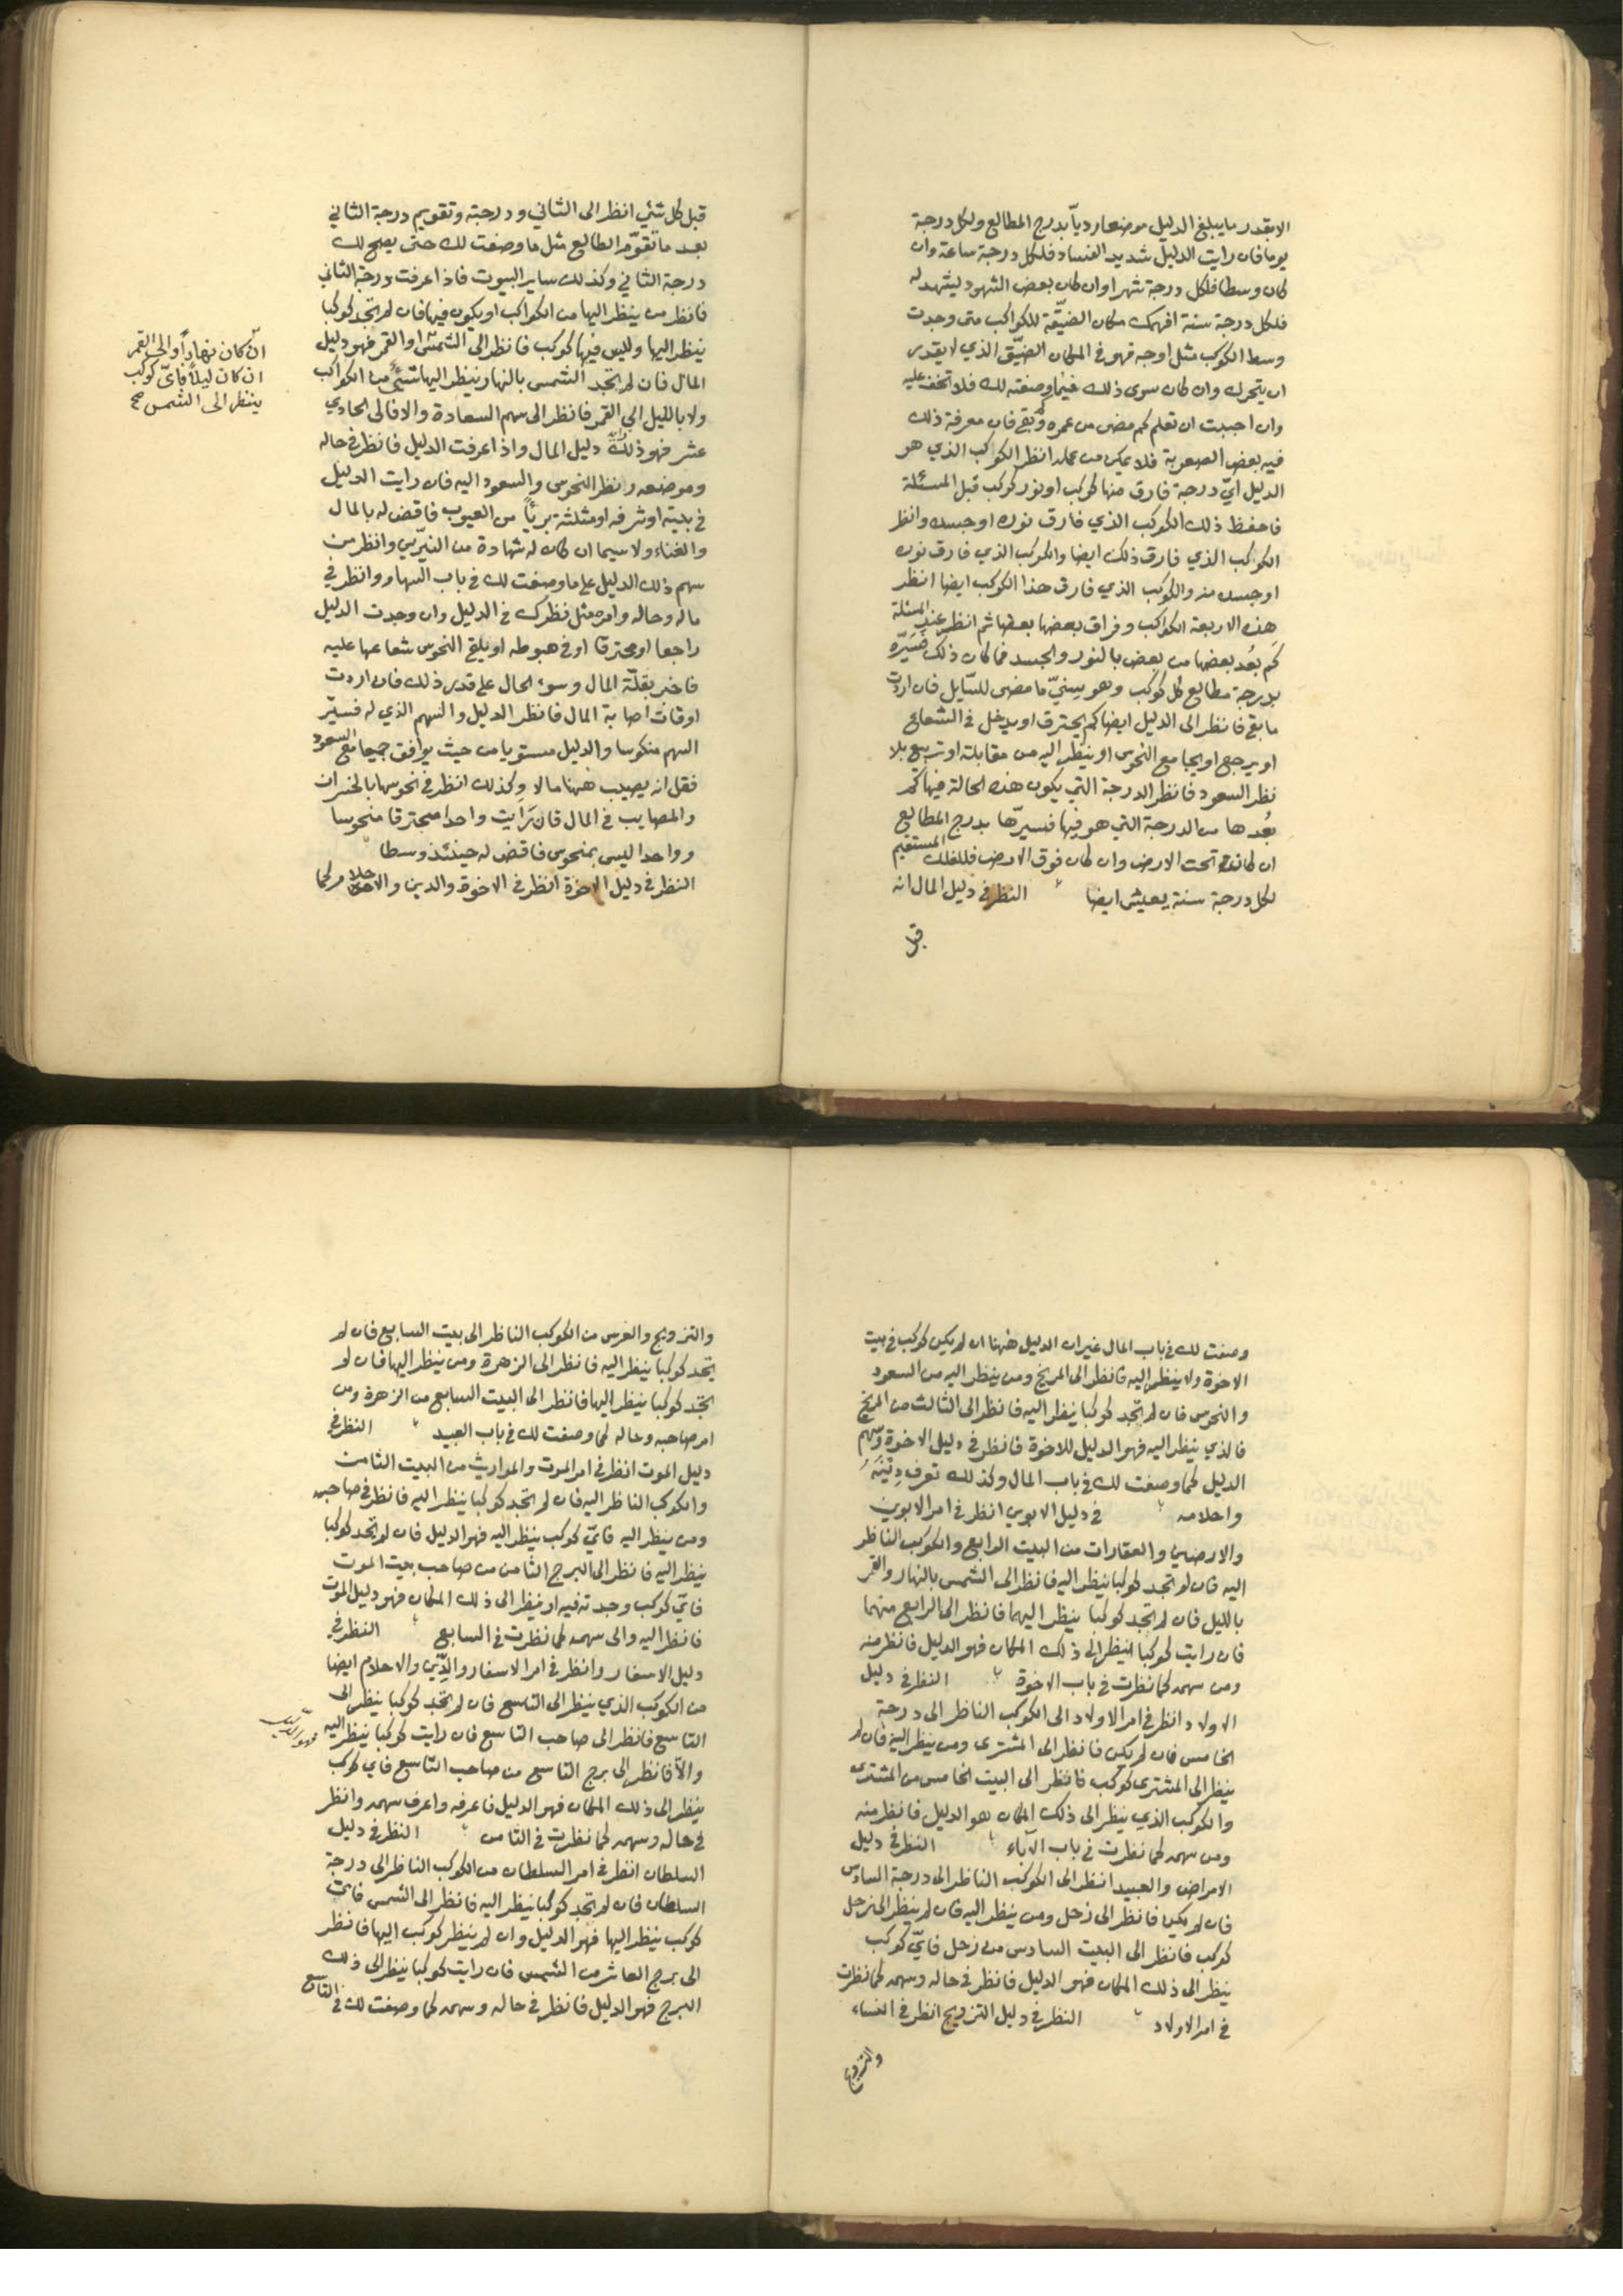 الا بقدر ما يبلغ الدليل موضعا رديّا بدرج المطالع ولكل درجة
يوما فان رايت الدليل شديد الفساد فلكل درجة ساعة وان
كان وسطا فلكل درجة شهرا وان كان بعض الشهود ليشهد له
فلكل درجة سنة افهمك مكان الضيّقة للكواكب متى وجدت
وسط الكوكب مثل اوجه فهو في المكان الضيّق الذي لا يقدر
ان يتحرك وان كان سوى ذلك فيما وصفته لك فلا تخف عليه
وان احببت ان تعلم كم مضى من عمره وكم بقي فان معرفة ذلك
فيه بعض الصعوبة فلا يمكن من عمله انظر الكوكب الذي هو
الدليل ايّ درجة فارق منها كوكب او نور كوكب قبل المسئلة
فاحفظ ذلك الكوكب الذي فارق نوره او جسده وانظر
الكوكب الذي فارق ذلك ايضا والكوكب الذي فارق نوره
او جسده منه والكوكب الذي فارق هذا الكوكب ايضا انظر
هذه الاربعة الكواكب وفراق بعضها بعضا ثم انظر عند المسئلة
كم بُعد بعضها من بعض بالنور والجسد فما كان ذلك فسيّره
بدرجة مطالع كل كوكب وهو سِنيّ ما مضى للسّايل فان اردت
ما بقي فانظر الى الدليل ايضا كم يحترق او يدخل في الشعاع
او يرجع او يجامع النحوس او ينظر اليه من مقابلة او تربيع بلا
نظر السعود فانظر الدرجة التي يكون هذه الحالة فيها كم
بُعدها من الدرجة التي هو فيها فسيرّها بدرج المطالع
ان كانت تحت الارض وان كان فوق الارض فللفلك المستقيم
لكل درجة سنة يعيش ايضا النظر في دليل المال انه
قبل
قبل كل شئ انظر الى الثاني ودرجته وتقويم درجة الثاني
بعد ما تقوّم الطالع مثل ما وصفت لك حتى يصح لك
درجة الثاني وكذلك ساير البيوت فاذا عرفت درجة الثاني
فانظر من ينظر اليها من الكواكب او يكون فيها فان لم تجد كوكبا
ينظر اليها وليس فيها كوكب فانظر الى الشمس او القمر فهو دليل
المال فان لم تجد الشمس بالنهار ينظر اليها شئ من الكواكب
ولا بالليل الى القمر فانظر الى سهم السعادة والا فالى الحادي
عشر فهو ذلك دليل المال واذا عرفت الدليل فانظر في حاله
وموضعه ونظر النحوس والسعود اليه فان رايت الدليل
في بيته او شرفه او مثلثته بريّا من العيوب فاقض له بالمال
والغناء ولا سيما ان كان له شهادة من النيّرين وانظر من
سهم ذلك الدليل على ما وصفت لك في باب السهام وانظر في
ماله وحاله وامره مثل نظرك في الدليل وان وجدت الدليل
راجعا او محترقا او في هبوطه او يلقي النحوس شعاعها عليه
فاخبر بقلّة المال وسوء الحال على قدر ذلك فان اردت
اوقات اصابة المال فانظر الدليل والسهم الذي له فسيّر
السهم منكوسا والدليل مستويا من حيث يوافق جميعا مع السعود
فقل انه يصيب ههنا مالا وكذلك انظر في نحوسها بالخسران
والمصايب في المال فان رَايت واحدا محترقا منحوسا
وواحدا ليس بمنحوس فاقض له حينئذ وسطا
النظر في دليل الاخوة انظر في الاخوة والدين والاحلام كما
ان كان نهاراً والى القمر
ان كان ليلاً فايّ كوكب
ينظر الى الشمس صح
وصفت لك في باب المال غير ان الدليل ههنا ان لم يكن كوكب في بيت
الاخوة ولا ينظر اليه فانظر الى المريخ ومن ينظر اليه من السعود
والنحوس فان لم تجد كوكبا ينظر اليه فانظر الى الثالث من المريخ
فالذي ينظر اليه فهو الدليل للاخوة فانظر في دليل الاخوة وسهم
الدليل كما وصفت لك في باب المال وكذلك تعرف دينَهُ
واحلامه في دليل الابوين انظر في امر الابوين
والارضين والعقارات من البيت الرابع والكوكب الناظر
اليه فان لم تجد كوكبا ينظر اليه فانظر الى الشمس بالنهار والقمر
بالليل فان لم تجد كوكبا ينظر اليهما فانظر الى الرابع منهما
فان رايت كوكبا ينظر الى ذلك المكان فهو الدليل فانظر منه
ومن سهمه كما نظرت في باب الاخوة النظر في دليل
الاولاد انظر في امر الاولاد الى الكوكب الناظر الى درجة
الخامس فان لم يكن فانظر الى المشترى ومن ينظر اليه فان لم
ينظر الى المشترى كوكب فانظر الى البيت الخامس من المشتري
والكوكب الذي ينظر الى ذلك المكان هو الدليل فانظر منه
ومن سهمه كما نظرت في باب الآباء النظر في دليل
الامراض والعبيد انظر الى الكوكب الناظر الى درجة السادس
فان لم يكن فانظر الى زحل ومن ينظر اليه فان لم ينظر الى زحل
كوكب فانظر الى البيت السادس من زحل فايّ كوكب
ينظر الى ذلك المكان فهو الدليل فانظر في حاله وسهمه كما نظرت
في امر الاولاد النظر في دليل التزويج انظر في النساء
والتزويج
والتزويج والعرس من الكوكب الناظر الى بيت السابع فان لم
تجد كوكبا ينظر اليه فانظر الى الزهرة ومن ينظر اليها فان لم
تجد كوكبا ينظر اليها فانظر الى البيت السابع من الزهرة ومن
امر صاحبه وحاله كما وصفت لك في باب العبيد النظر في
دليل الموت انظر في امر الموت والمواريث من البيت الثامن
والكوكب الناظر اليه فان لم تجد كوكبا ينظر اليه فانظر في صاحبه
ومن ينظر اليه فايّ كوكب ينظر اليه فهو الدليل فان لم تجد كوكبا
ينظر اليه فانظر الى البرج الثامن من صاحب بيت الموت
فايّ كوكب وجدته فيه او ينظر الى ذلك المكان فهو دليل الموت
فانظر اليه والى سهمه كما نظرت في السابع النظر في
دليل الاسفار وانظر في امر الاسفار والدّين والاحلام ايضا
من الكوكب الذي ينظر الى التاسع فان لم تجد كوكبا ينظر الى
التاسع فانظر الى صاحب التاسع فان رايت كوكبا ينظر اليه
والّا فانظر الى برج التاسع من صاحب التاسع فاي كوكب
ينظر الى ذلك المكان فهو الدليل فاعرفه واعرف سهمه وانظر
في حاله وسهمه كما نظرت في الثامن النظر في دليل
السلطان انظر في امر السلطان من الكوكب الناظر الى درجة
السلطان فان لم تجد كوكبا ينظر اليه فانظر الى الشمس فايّ
كوكب ينظر اليها فهو الدليل وان لم ينظر كوكب اليها فانظر
الى برج العاشر من الشمس فان رايت كوكبا ينظر الى ذلك
البرج فهو الدليل فانظر في حاله وسهمه كما وصفت لك في التاسع
فهو الدليل